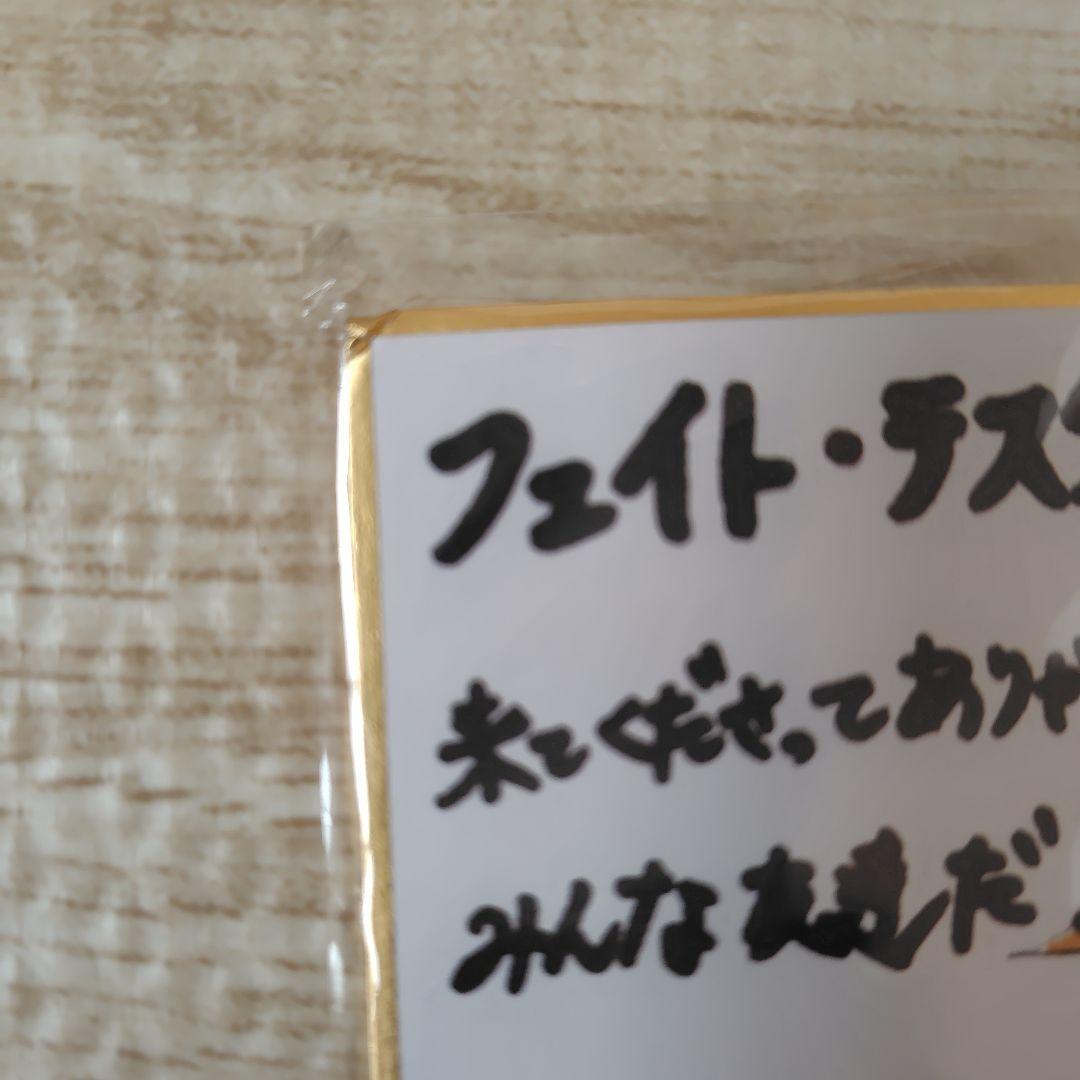 フェイト・テス
来てくださってありが
みんな友達だ